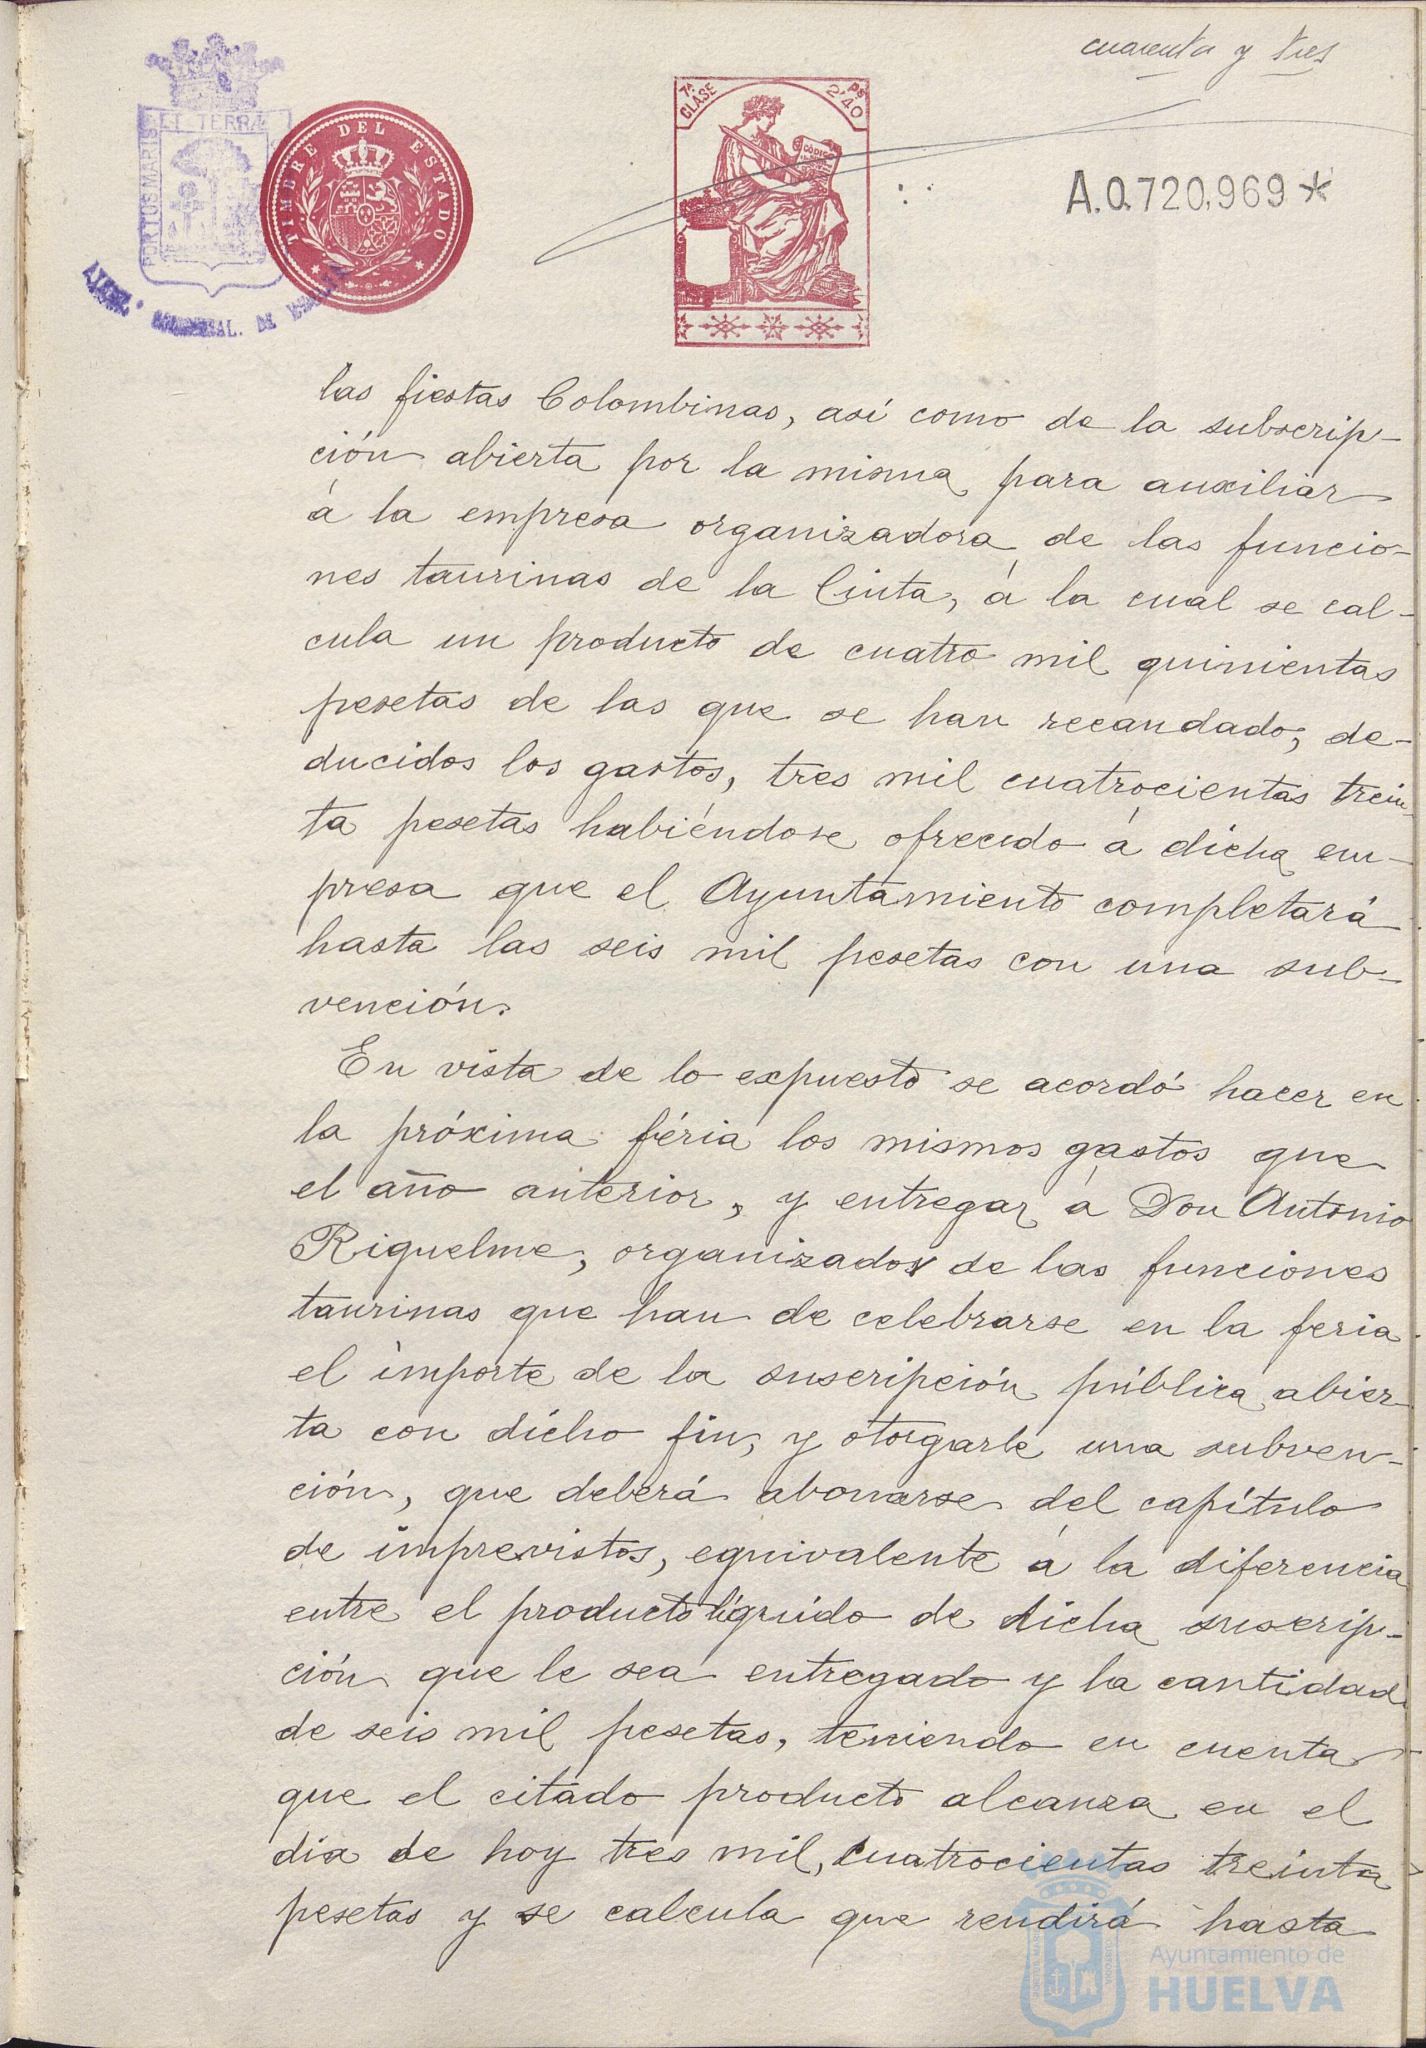 cuarenta y tres
PORTUS MARIS ET TERRÆ
TIMBRE DEL ESTADO
7ª CLASE
Ps 2'40
CÓDIGO
A.0.720,969*
DE HUELVA
las fiestas Colombinas, así como de la subscrip-
ción abierta por la misma para auxiliar
á la empresa organizadora de las funcio-
nes taurinas de la Cinta, á la cual se cal-
cula un producto de cuatro mil quinientas
pesetas de las que se han recaudado, de-
ducidos los gastos, tres mil cuatrocientas trein-
ta pesetas habiéndose ofrecido á dicha em-
presa que el Ayuntamiento completará
hasta las seis mil pesetas con una sub-
vención.
En vista de lo expuesto se acordó hacer en
la próxima féria los mismos gastos que
el año anterior, y entregar á Don Antonio
Riquelme, organizador de las funciones
taurinas que han de celebrarse en la feria
el importe de la suscripción pública abier-
ta con dicho fin, y otorgarle una subven-
ción, que deberá abonarse del capítulo
de imprevistos, equivalente á la diferencia
entre el producto líquido de dicha suscrip-
ción que le sea entregado y la cantidad
de seis mil pesetas, teniendo en cuenta
que el citado producto alcanza en el
dia de hoy tres mil, cuatrocientas treinta
pesetas y se calcula que rendirá hasta
Ayuntamiento de
HUELVA